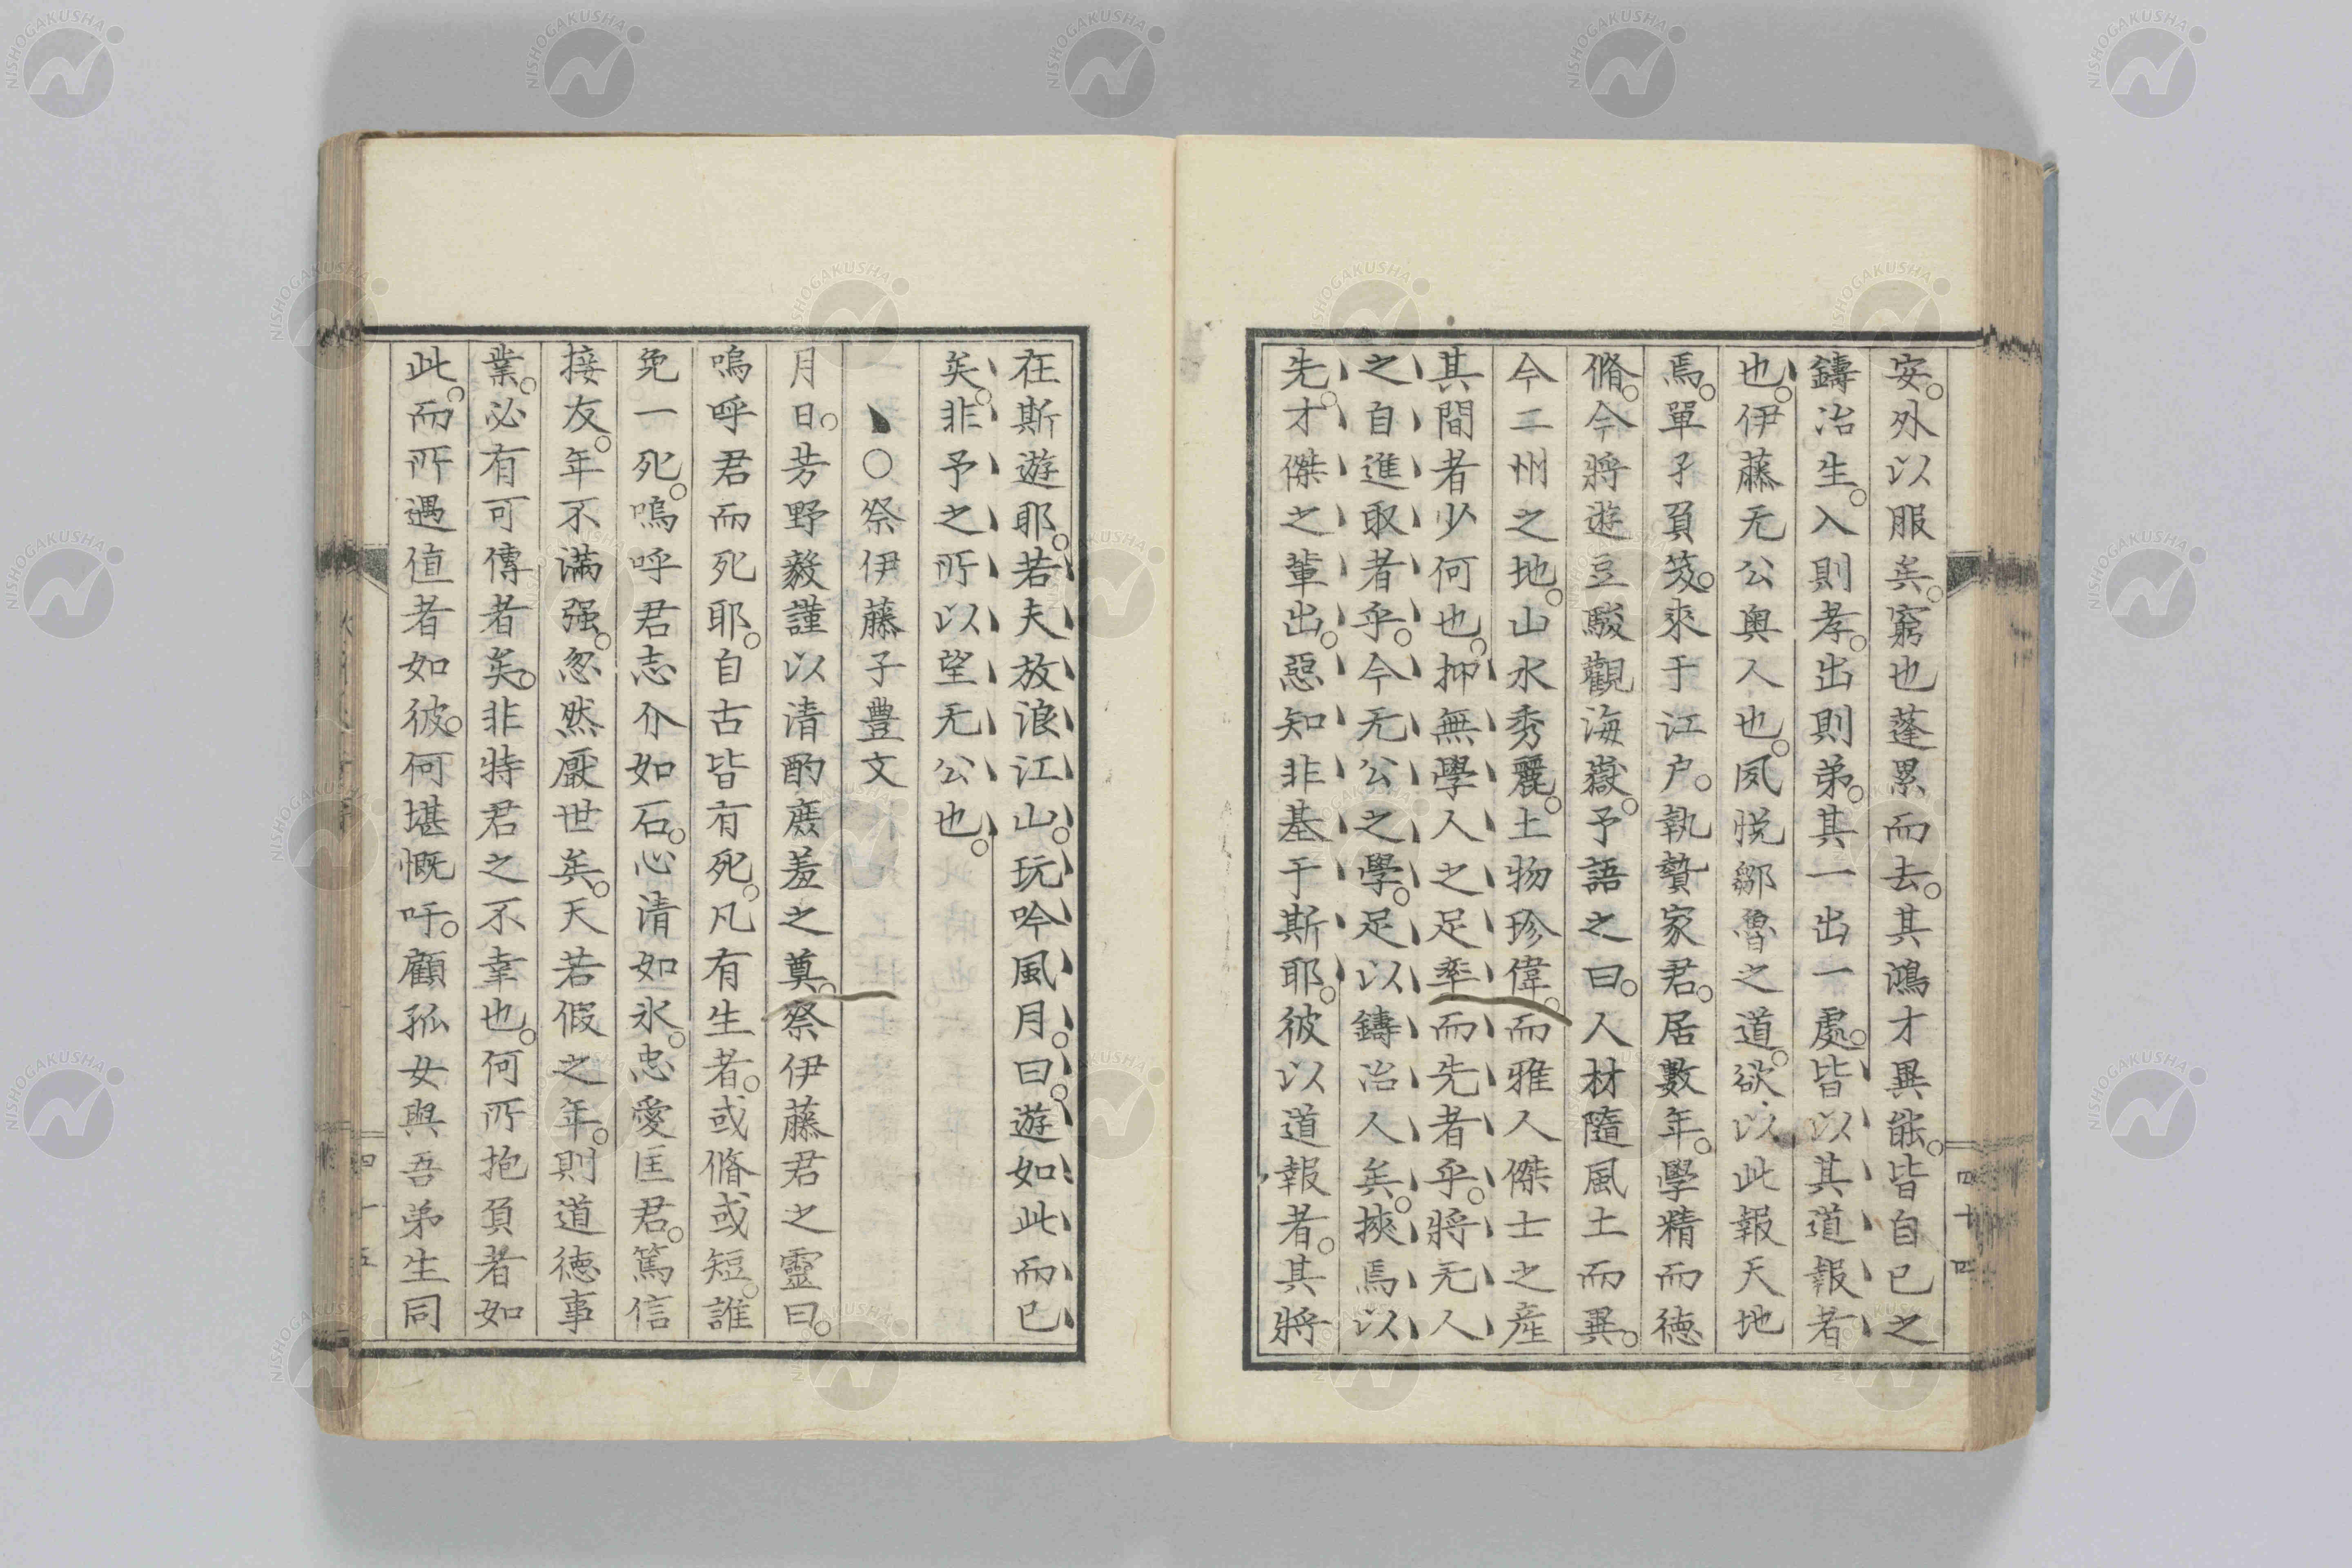 安。外以服矣。窮也蓬累而去。其鴻才異能。皆自已之
鑄冶生。入則孝。出則弟。其一出一處。皆以其道報者
也。伊藤无公奥人也。夙悦鄒魯之道。欲以此報天地
焉。單孑負笈。來于江户。執贄家君。居數年。學精而徳
脩。今將遊豆駿觀海嶽。予語之曰。人材隨風土而異。
今二州之地。山水秀麗。土物珍偉。而雅人傑士之産
其間者少何也。抑無學人之足率而先者乎。將无人
之自進取者乎。今无公之學。足以鑄冶人矣。挾焉以
先。才傑之輩出。惡知非基于斯耶。彼以道報者。其將
在斯遊耶。若夫放浪江山。玩吟風月。曰。遊如此而已
矣。非予之所以望无公也。
○祭伊藤子豊文
月日。芳野毅謹以清酌庶羞之奠。祭伊藤君之靈曰。
嗚呼君而死耶。自古皆有死。凡有生者。或脩或短。誰
免一死。嗚呼君志介如石。心清如氷。忠愛匡君。篤信
接友。年不滿强。忽然厭世矣。天若假之年。則道徳事
業。必有可傳者矣。非特君之不幸也。何所抱負者如
此。而所遇値者如彼。何堪慨吁。顧孤女與吾弟生同
四十四
四十五
NISHOGAKUSHA